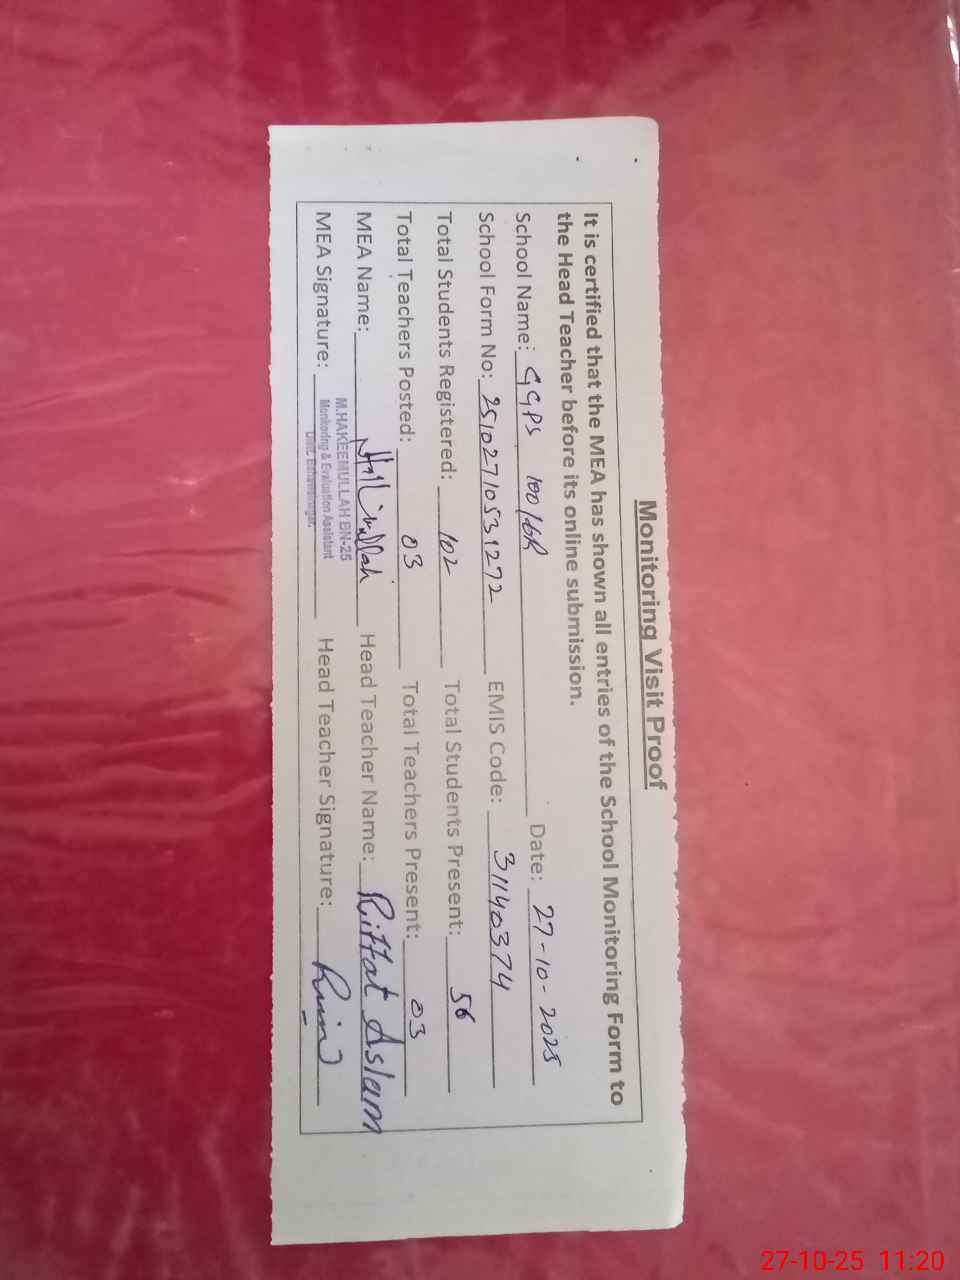 Monitoring Visit Proof
It is certified that the MEA has shown all entries of the School Monitoring Form to
the Head Teacher before its online submission.
School Name: GGPS 100/6R Date: 27-10-2025
School Form No: 25102710531272 EMIS Code: 31140374
Total Students Registered: 102 Total Students Present: 56
Total Teachers Posted: 03 Total Teachers Present: 03
MEA Name: Head Teacher Name: Riffat Aslam
M.HAKEEMULLAH BN-25
MEA Signature: Monitoring & Evaluation Assistant Head Teacher Signature:
Distt. Bahawalnagar.
27-10-25 11:20